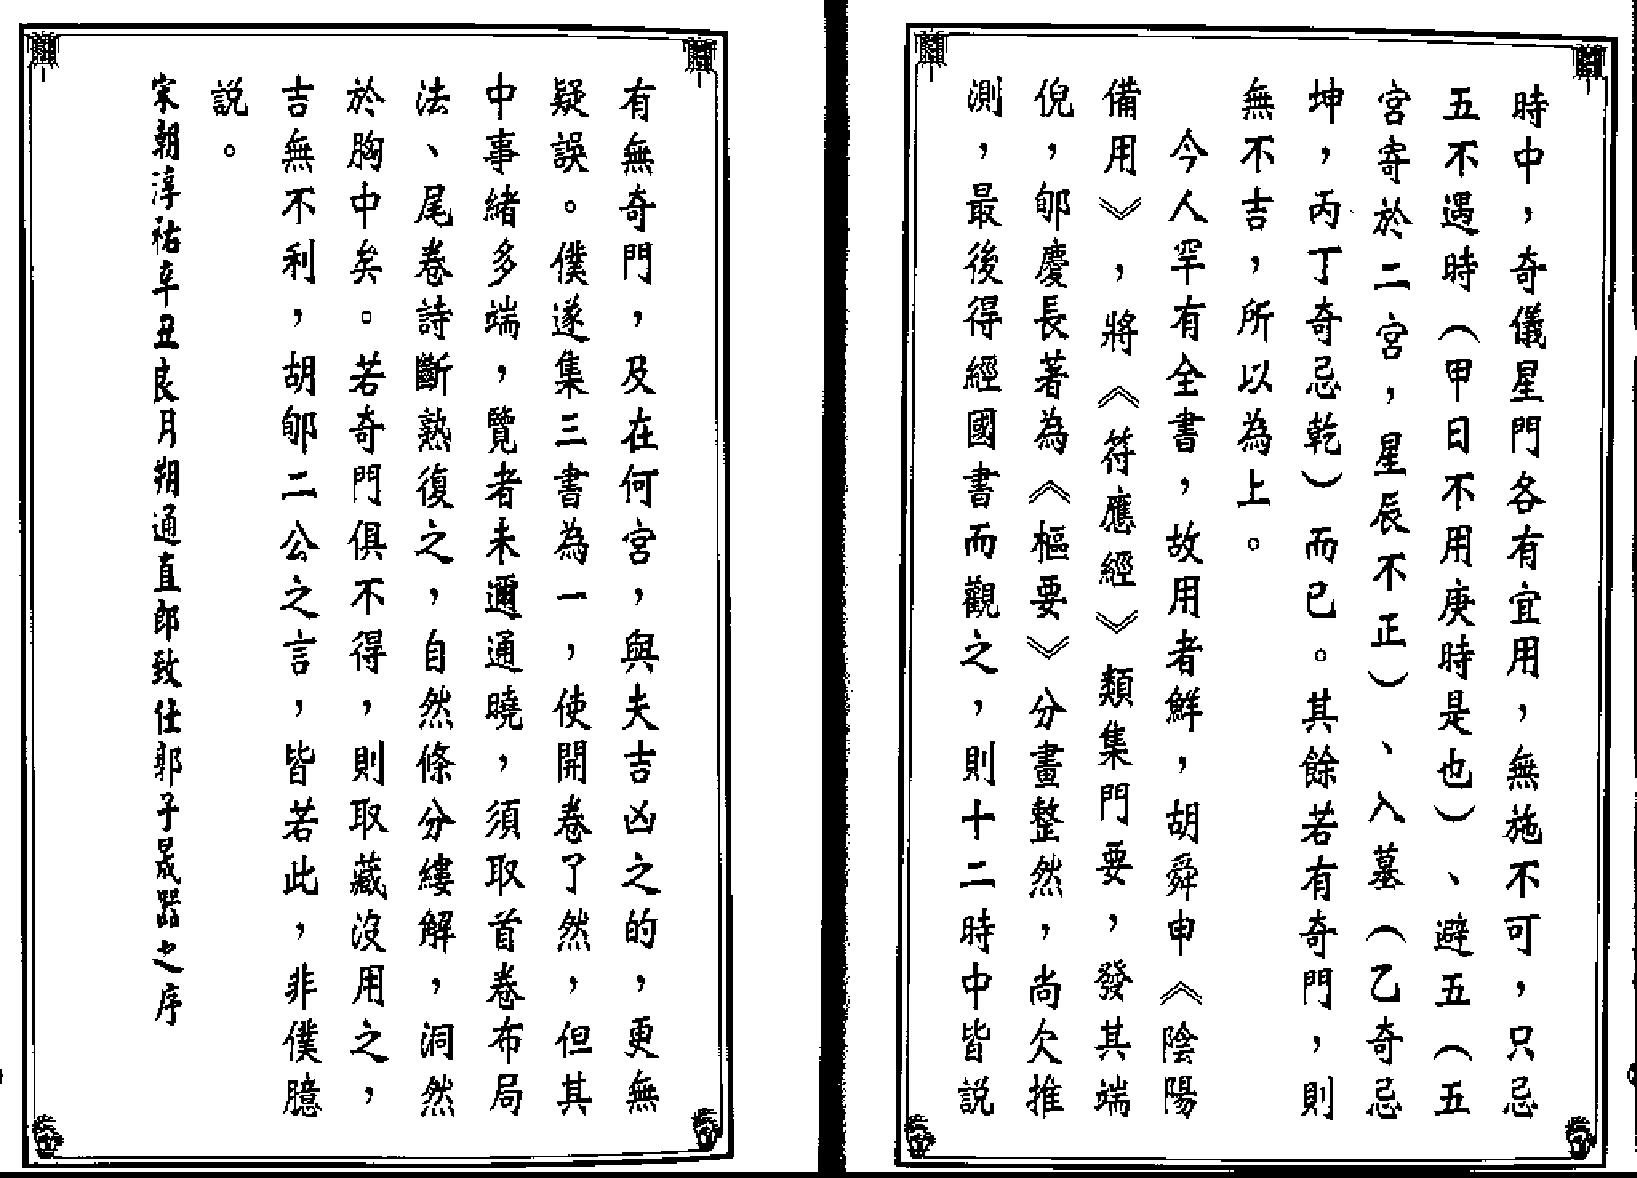 時中，奇儀星門各有宜用，無施不可，只忌
五不遇時（甲日不用庚時是也）、避五（五
宮寄於二宮，星辰不正）、入墓（乙奇忌
坤，丙丁奇忌乾）而已。其餘若有奇門，則
無不吉，所以為上。
今人罕有全書，故用者鮮，胡舜申《陰陽
備用》，將《符應經》類集門要，發其端
倪，郇慶長著為《樞要》分畫整然，尚欠推
測，最後得經國書而觀之，則十二時中皆説
有無奇門，及在何宮，與夫吉凶之的，更無
疑誤。僕遂集三書為一，使開卷了然，但其
中事緒多端，覽者未遽通曉，須取首卷布局
法、尾卷詩斷熟復之，自然條分縷解，洞然
於胸中矣。若奇門俱不得，則取藏沒用之，
吉無不利，胡郇二公之言，皆若此，非僕臆
説。
宋朝淳祐辛丑良月朔通直郎致仕郭子晟器之序